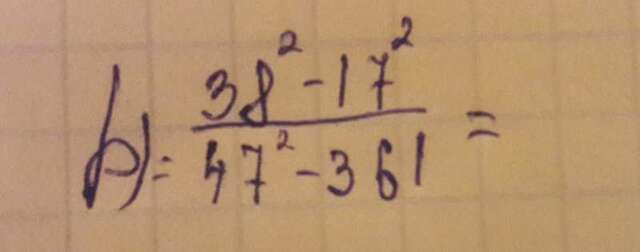 b)= (38² - 17²) / (47² - 361) =